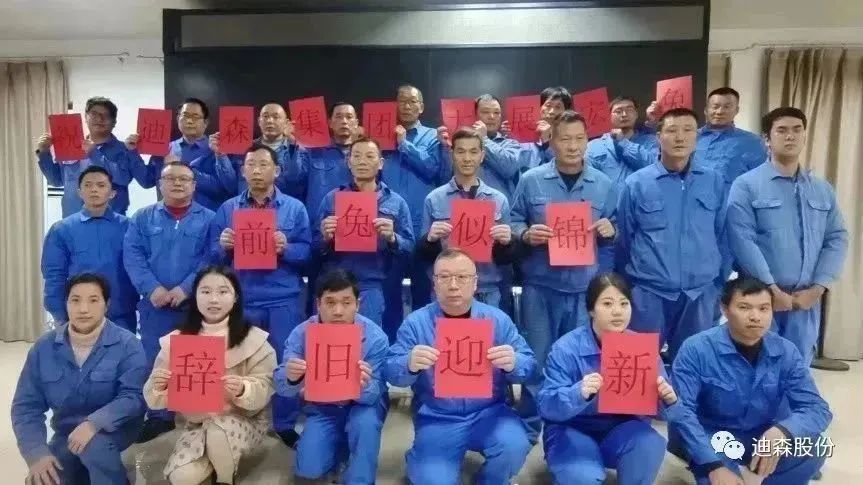 祝迪森集团大展宏兔
前兔似锦
辞旧迎新
迪森股份